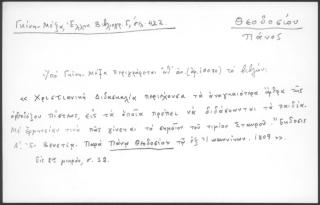 Γκίνη-Μέξα, Ἑλλην. Βιβλιογρ. Γ, σελ. 422
Θεοδοσίου
Πάνος
Ὑπὸ Γκίνη-Μέξα περιγράφεται ὑπ' ἀρ. τὸ βιβλίον:
« Χριστιανικὴ Διδασκαλία περιέχουσα τὰ ἀναγκαιότερα ἄρθρα τῆς
ὀρθοδόξου πίστεως, εἰς τὰ ὁποῖα πρέπει νὰ διδάσκωνται τὰ παιδία.
Μὲ ἑρμηνείαν πῶς γίνεται τὸ σημεῖον τοῦ τιμίου Σταυροῦ. Ἔκδοσις
Α΄. Ἐν Βενετίᾳ. Παρὰ Πάνῳ Θεοδοσίου τῷ ἐξ Ἰωαννίνων. 1809 ».
Εἰς 8ον μικρόν, σ. 32.